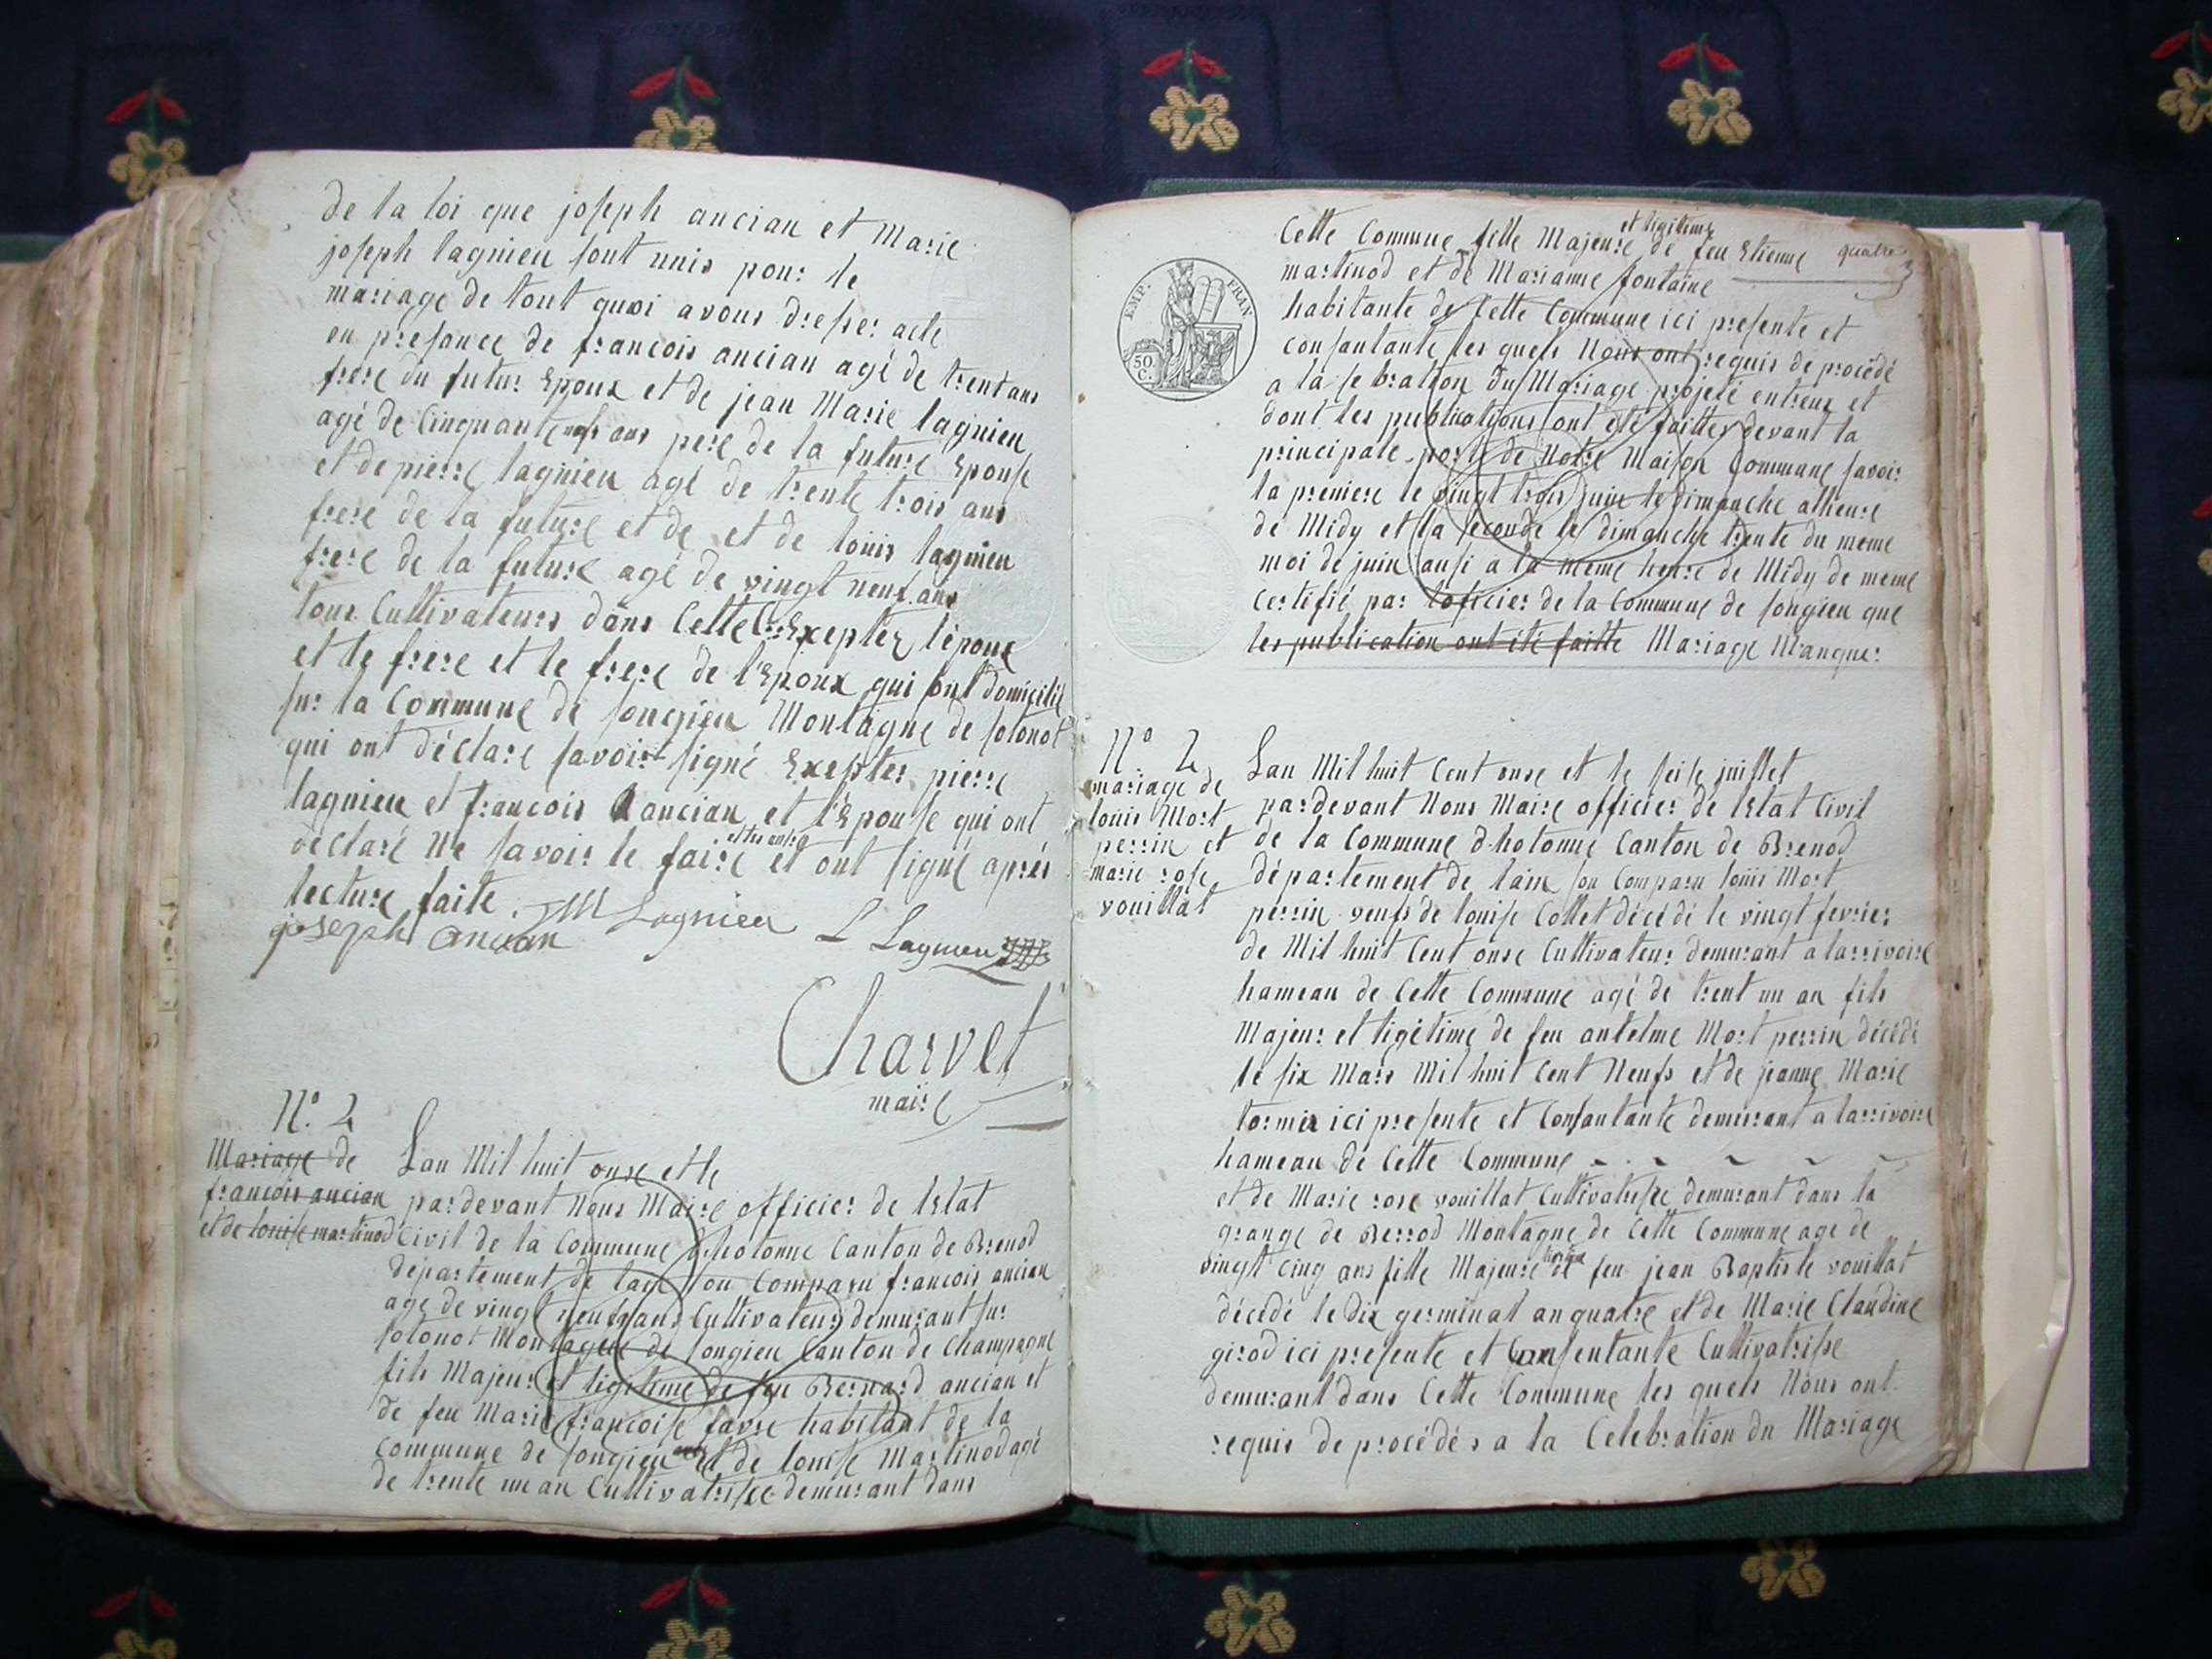 de la loi que joseph ancian et Marie
joseph lagnieu sont unis pour le
mariage de tout quoi avons dresser acte
en presance de francois ancian agé de trent ans
frere du futur Epoux et de jean Marie lagnieu
agé de Cinquante neuf ans pere de la future Epouse
et de pierre lagnieu agé de trente trois ans
frere de la future et de et de louis lagnieu
frere de la future agé de vingt neuf ans
tous Cultivateurs dans Cette Exepter l'epoux
et le frere et le frere de l'Epoux qui ont domicilié
sur la Commune de songieu Montagne de sotonot
qui ont déclaré savoir signé Exepter pierre
lagnieu et francois ancian et l'Epouse qui ont
déclaré Ne savoir le faire et ont signé aprés
lecture faite. JM Lagnieu
joseph ancian L Lagnieu
Charvet
maire
N.o 2
Mariage de
francois ancian
et de louise martinod
Lan Mil huit onse et le
par devant Nous Maire officier de lEtat
Civil de la Commune d'hotonne Canton de Brenod
département de lain son Comparu francois ancian
age de vingt neuf ans Cultivateur demurant sur
sotonot Montagne de songieu Canton de Champagne
fils Majeur et ligitime de feu Bernard ancian et
de feu Marie francoise favre habitant de la
Commune de songieu et de louise Martinod agé
de trente un an Cultivatrisse demurant dans
quatre
Cette Commune fille Majeure et ligitime de feu Etienne
martinod et de Marianne fontaine
habitante de Cette Commune ici presente et
consantante les quels Nous ont requis de procédé
a la se bration du Mariage projeté entreux et
dont les publications ont été faittes devant la
principale porte de Notre Maison Commune savoir
la premiere le vingt trois juin le dimanche a lheure
de Midy et la seconde le dimanche trente du meme
moi de juin ausi a la meme heure de Midy de meme
Certifié par loficier de la Commune de songieu que
les publication ont été faitte Mariage Manquer
EMP. FRAN
50 C.
N.o 2
mariage de
louis Mort
perrin et
marie rose
vouillat
Lan Mil huit Cent onse et le seise juillet
par devant Nous Maire officier de lEtat Civil
de la Commune d'hotonne Canton de Brenod
département de lain son Comparu louis Mort
perrin veufs de louise Collet décédé le vingt fevrier
de Mil huit Cent onse Cultivateur demurant a larrivoire
hameau de Cette Commune agé de trent un an fils
Majeur et ligétime de feu antelme Mort perrin décédé
le six Mars Mil huit Cent Neufs et de jeanne Marie
tormier ici presente et Consantante demurant a larrivoire
hameau de Cette Commune
et de Marie rose vouillat Cultivatrisse demurant dans la
grange de Berrod Montagne de Cette Commune age de
vingt cinq ans fille Majeure de feu jean Baptiste vouillat
décédé le dix germinal an quatre et de Marie Claudine
girod ici presente et Consentante Cultivatrisse
demurant dans Cette Commune les quels Nous ont
requis de procédér a la Celebration du Mariage